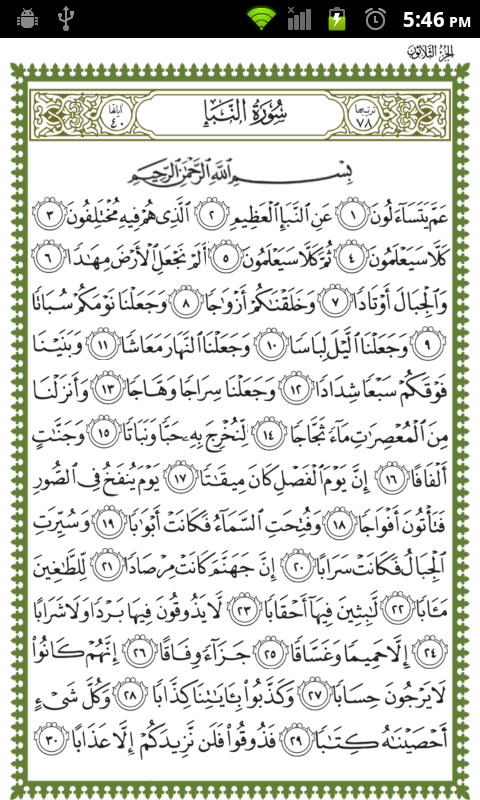 5:46 PM
الجزء الثلاثون
ترتيبها ٧٨ سُورَةُ النَّبَإِ آياتها ٤٠
بِسْمِ اللَّهِ الرَّحْمَٰنِ الرَّحِيمِ
عَمَّ يَتَسَاءَلُونَ ١ عَنِ النَّبَإِ الْعَظِيمِ ٢ الَّذِي هُمْ فِيهِ مُخْتَلِفُونَ ٣
كَلَّا سَيَعْلَمُونَ ٤ ثُمَّ كَلَّا سَيَعْلَمُونَ ٥ أَلَمْ نَجْعَلِ الْأَرْضَ مِهَٰدًا ٦
وَالْجِبَالَ أَوْتَادًا ٧ وَخَلَقْنَٰكُمْ أَزْوَٰجًا ٨ وَجَعَلْنَا نَوْمَكُمْ سُبَاتًا
٩ وَجَعَلْنَا الَّيْلَ لِبَاسًا ١٠ وَجَعَلْنَا النَّهَارَ مَعَاشًا ١١ وَبَنَيْنَا
فَوْقَكُمْ سَبْعًا شِدَادًا ١٢ وَجَعَلْنَا سِرَاجًا وَهَّاجًا ١٣ وَأَنزَلْنَا
مِنَ الْمُعْصِرَٰتِ مَاءً ثَجَّاجًا ١٤ لِّنُخْرِجَ بِهِ حَبًّا وَنَبَاتًا ١٥ وَجَنَّٰتٍ
أَلْفَافًا ١٦ إِنَّ يَوْمَ الْفَصْلِ كَانَ مِيقَٰتًا ١٧ يَوْمَ يُنفَخُ فِي الصُّورِ
فَتَأْتُونَ أَفْوَاجًا ١٨ وَفُتِحَتِ السَّمَاءُ فَكَانَتْ أَبْوَٰبًا ١٩ وَسُيِّرَتِ
الْجِبَالُ فَكَانَتْ سَرَابًا ٢٠ إِنَّ جَهَنَّمَ كَانَتْ مِرْصَادًا ٢١ لِّلطَّٰغِينَ
مَـَٔابًا ٢٢ لَّٰبِثِينَ فِيهَا أَحْقَابًا ٢٣ لَّا يَذُوقُونَ فِيهَا بَرْدًا وَلَا شَرَابًا
٢٤ إِلَّا حَمِيمًا وَغَسَّاقًا ٢٥ جَزَاءً وِفَاقًا ٢٦ إِنَّهُمْ كَانُوا
لَا يَرْجُونَ حِسَابًا ٢٧ وَكَذَّبُوا بِـَٔايَٰتِنَا كِذَّابًا ٢٨ وَكُلَّ شَيْءٍ
أَحْصَيْنَٰهُ كِتَٰبًا ٢٩ فَذُوقُوا فَلَن نَّزِيدَكُمْ إِلَّا عَذَابًا ٣٠